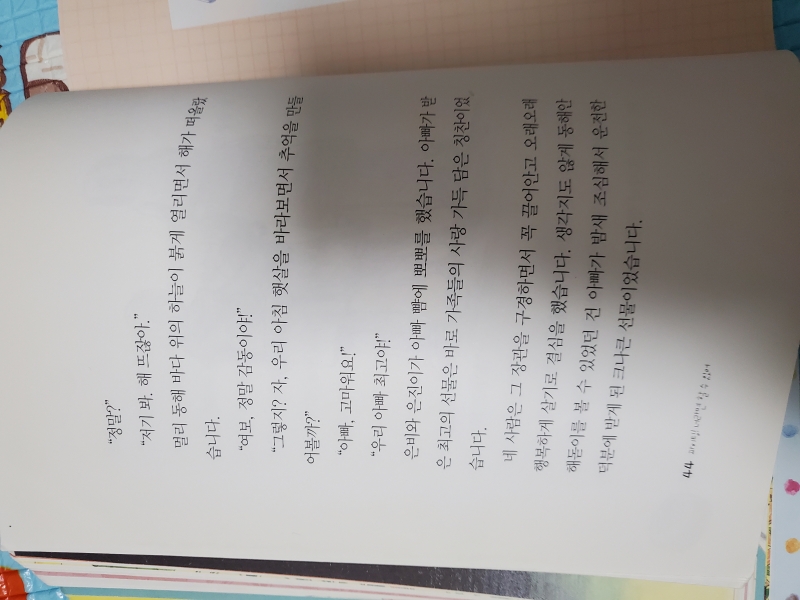 “정말?”
“저기 봐. 해 뜨잖아.”
멀리 동해 바다 위의 하늘이 붉게 열리면서 해가 떠올랐
습니다.
“여보, 정말 감동이야!”
“그렇지? 자, 우리 아침 햇살을 바라보면서 추억을 만들
어볼까?”
“아빠, 고마워요!”
“우리 아빠 최고야!”
은비와 은진이가 아빠 뺨에 뽀뽀를 했습니다. 아빠가 받
은 최고의 선물은 바로 가족들의 사랑 가득 담은 칭찬이었
습니다.
네 사람은 그 장관을 구경하면서 꼭 끌어안고 오래오래
행복하게 살기로 결심을 했습니다. 생각지도 않게 동해안
해돋이를 볼 수 있었던 건 아빠가 밤새 조심해서 운전한
덕분에 받게 된 크나큰 선물이었습니다.
44